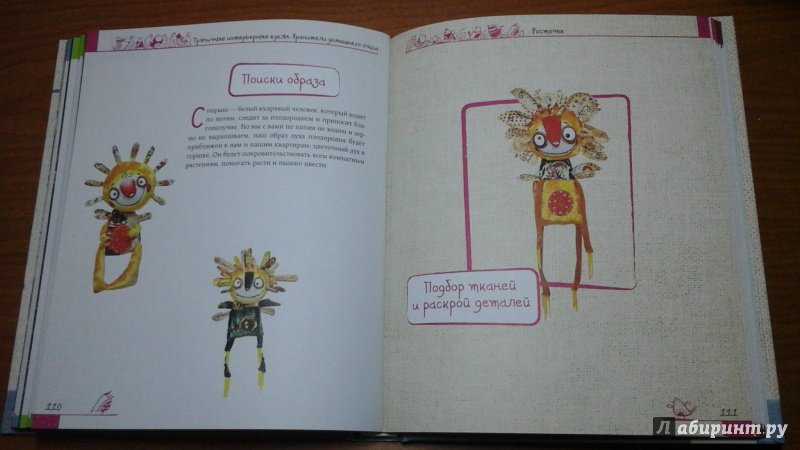 Тряпичные интерьерные куклы. Хранители домашнего очага
Поиски образа
Спорыш — белый кудрявый человек, который ходит
по полям, следит за плодородием и приносит бла-
гополучие. Но мы с вами по полям не ходим и зер-
но не выращиваем, наш образ духа плодородия будет
приближен к нам и нашим квартирам: цветочный дух в
горшке. Он будет покровительствовать всем комнатным
растениям, помогать расти и пышно цвести.
110
Росточек
Подбор тканей
и раскрой деталей
111
Лабиринт.ру